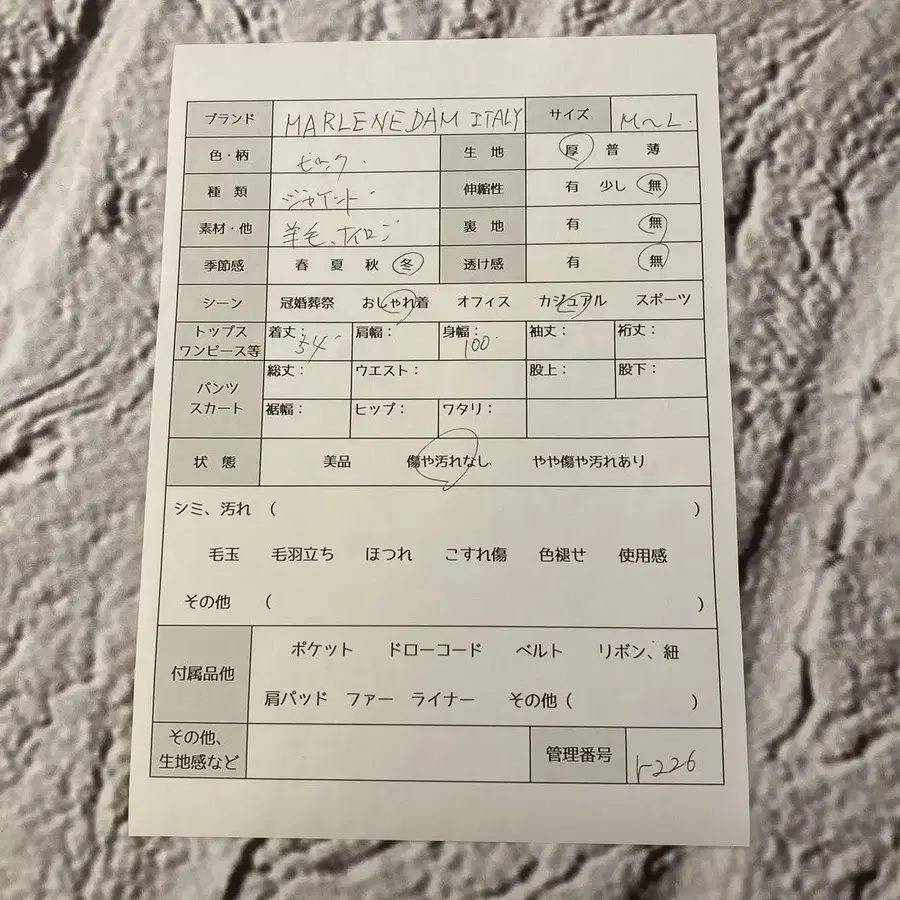 ブランド MARLENEDAM ITALY サイズ M〜L.
色・柄 ピンク. 生地 厚 普 薄
種類 伸縮性 有 少し 無
素材・他 羊毛、ナイロン 裏地 有 無
季節感 春 夏 秋 冬 透け感 有 無
シーン 冠婚葬祭 おしゃれ着 オフィス カジュアル スポーツ
トップス ワンピース等 着丈: 54 肩幅: 身幅: 100 袖丈: 裄丈:
パンツ スカート 総丈: ウエスト: 股上: 股下:
裾幅: ヒップ: ワタリ:
状態 美品 傷や汚れなし やや傷や汚れあり
シミ、汚れ ( )
毛玉 毛羽立ち ほつれ こすれ傷 色褪せ 使用感
その他 ( )
付属品他 ポケット ドローコード ベルト リボン、紐
肩パッド ファー ライナー その他 ( )
その他、生地感など 管理番号 r226